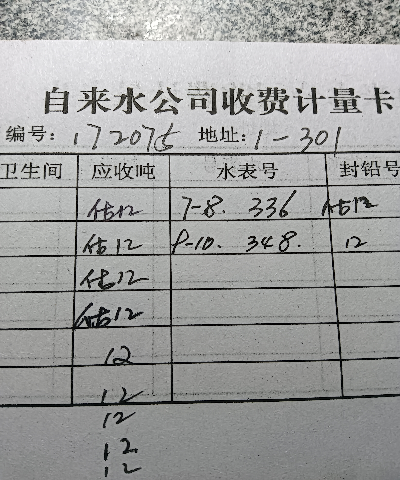 自来水公司收费计量卡
编号: 172075 地址: 1-301
卫生间 应收吨 水表号 封铅号
估12 7-8. 336 估12
估12 9-10. 348. 12
估12
估12
12
12
12
12
12